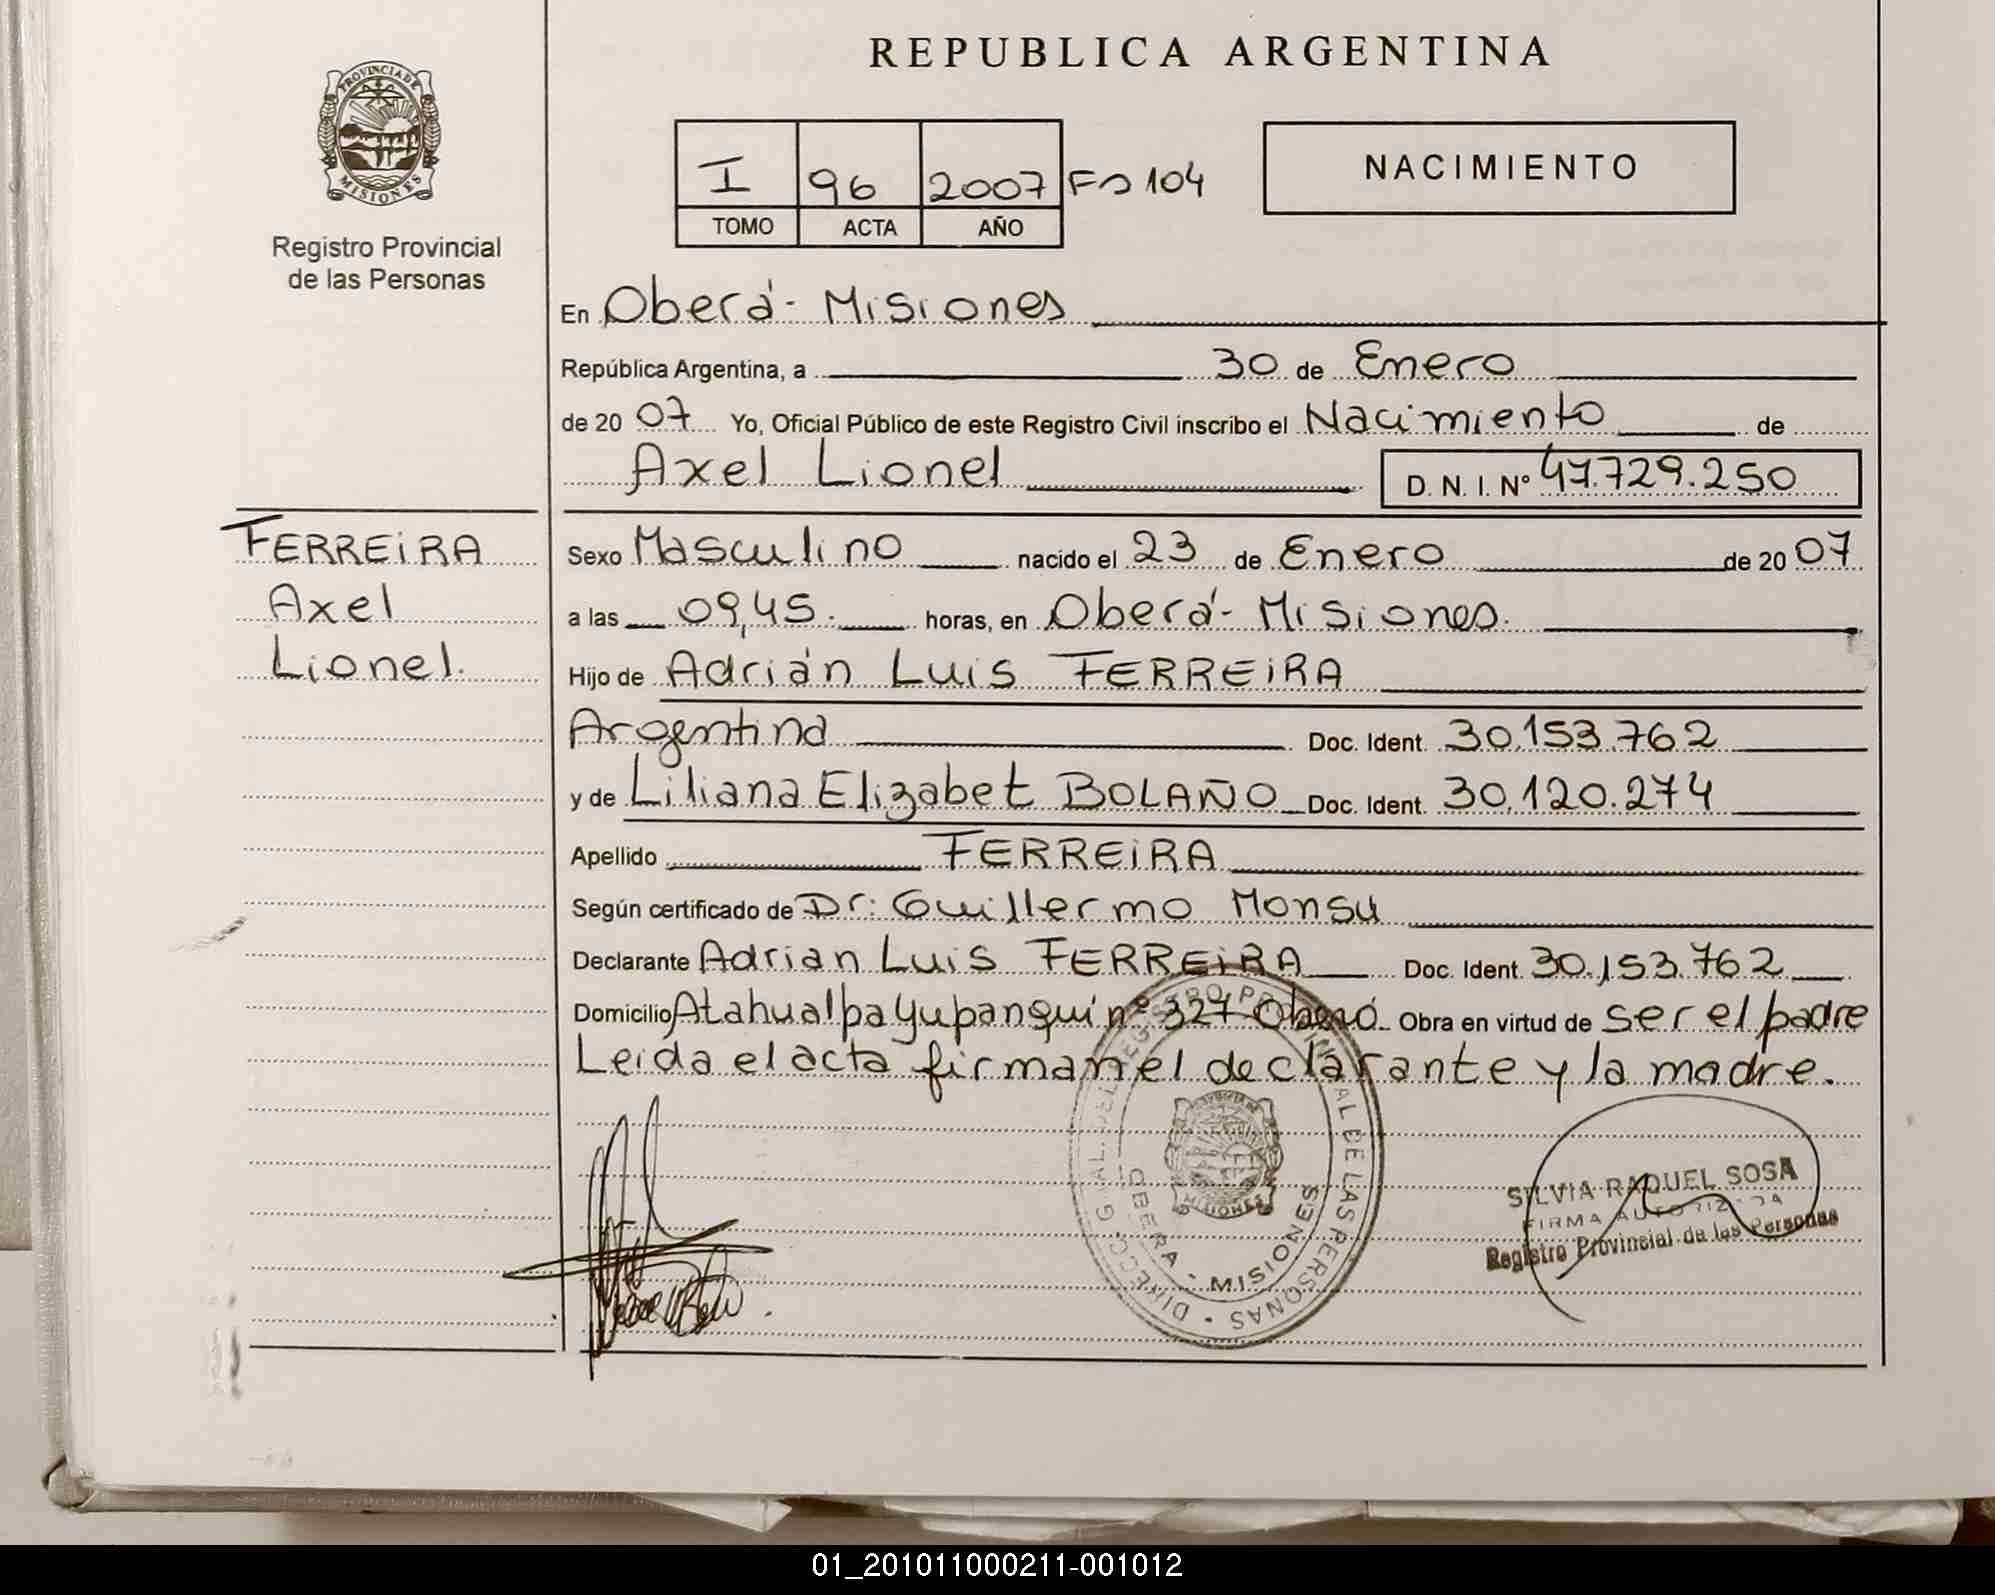 REPUBLICA ARGENTINA
PROVINCIA DE
MISIONES
Registro Provincial
de las Personas
I 96 2007 Fº 104
TOMO ACTA AÑO
NACIMIENTO
En Oberá - Misiones
República Argentina, a 30 de Enero
de 20 07 Yo, Oficial Público de este Registro Civil inscribo el Nacimiento de
Axel Lionel D. N. I. Nº 47.729.250
FERREIRA
Axel
Lionel.
Sexo Masculino nacido el 23 de Enero de 20 07
a las 09,45. horas, en Oberá - Misiones.
Hijo de Adrián Luis FERREIRA
Argentina Doc. Ident. 30.153.762
y de Liliana Elizabet BOLAÑO Doc. Ident. 30.120.274
Apellido FERREIRA
Según certificado de Dr: Guillermo Monsu
Declarante Adrian Luis FERREIRA Doc. Ident. 30.153.762
Domicilio Atahualpa Yupanqui nº 327 Oberá. Obra en virtud de ser el padre
Leida el acta firman el declarante y la madre.
REGISTRO PROVINCIAL DE LAS PERSONAS
OBERA - MISIONES
MISIONES
SILVIA RAQUEL SOSA
FIRMA AUTORIZADA
Registro Provincial de las Personas
01_201011000211-001012